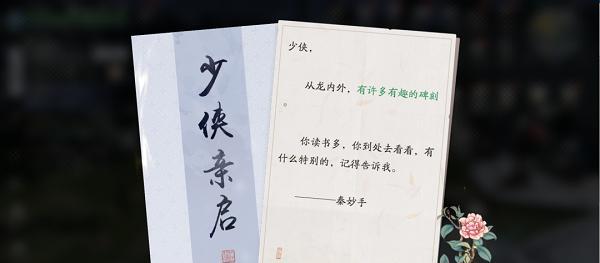 少侠亲启
少侠，
从龙内外，有许多有趣的碑刻
。
你读书多，你到处去看看，有
什么特别的，记得告诉我。
———秦妙手